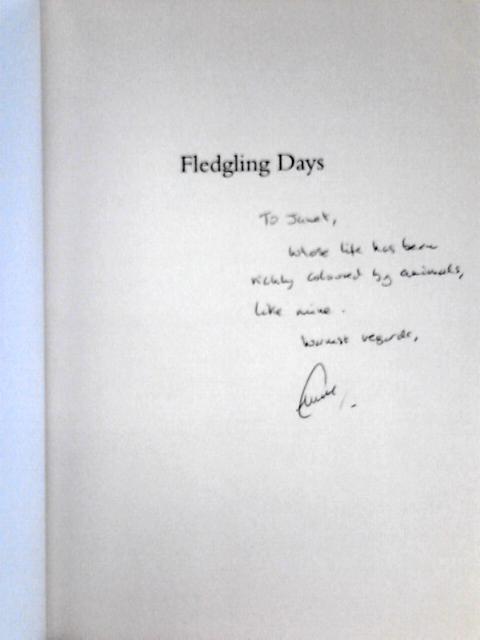 Fledgling Days
To Janet,
whose life has been
richly coloured by animals,
like mine.
Warmest regards,